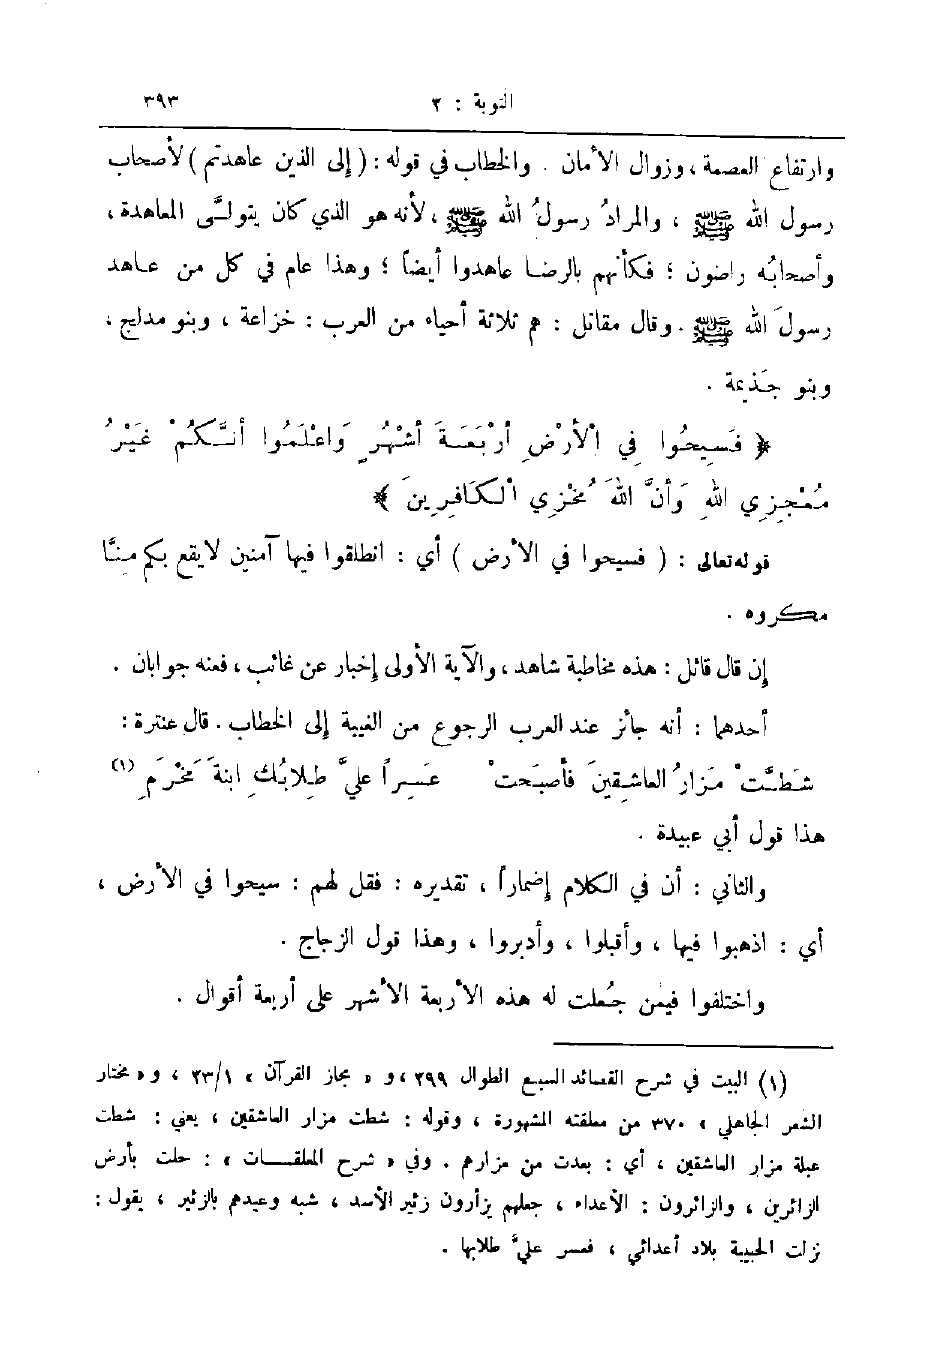 التوبة : ٢ ٣٩٣
وارتفاع العصمة ، وزوال الأمان . والخطاب في قوله : ( إلى الذين عاهدتم ) لأصحاب
رسول الله ﷺ ، والمرادُ رسولُ الله ﷺ ، لأنه هو الذي كان يتولَّى المعاهدة ،
وأصحابُه راضون ؛ فكأنهم بالرضا عاهدوا أيضاً ؛ وهذا عام في كل من عاهد
رسولَ الله ﷺ . وقال مقاتل : هم ثلاثة أحياء من العرب : خزاعة ، وبنو مدلج ،
وبنو جَذيمة .
﴿ فَسِيحُوا فِي الْأَرْضِ أَرْبَعَةَ أَشْهُرٍ وَاعْلَمُوا أَنَّكُمْ غَيْرُ
مُعْجِزِي اللهِ وَأَنَّ اللهَ مُخْزِي الْكَافِرِينَ ﴾
قوله تعالى : ( فسيحوا في الأرض ) أي : انطلقوا فيها آمنين لا يقع بكم مِنَّا
مكروه .
إن قال قائل : هذه مخاطبة شاهد ، والآية الأولى إخبار عن غائب ، فعنه جوابان .
أحدهما : أنه جائز عند العرب الرجوع من الغيبة إلى الخطاب . قال عنترة :
شَطَّتْ مَزارُ العاشِقينَ فأصبَحتْ عَسِراً عليَّ طِلابُكِ ابنةَ مَخْرَمِ (١)
هذا قول أبي عبيدة .
والثاني : أن في الكلام إضماراً ، تقديره : فقل لهم : سيحوا في الأرض ،
أي : اذهبوا فيها ، وأقبلوا ، وأدبروا ، وهذا قول الزجاج .
واختلفوا فيمن جُعلت له هذه الأربعة الأشهر على أربعة أقوال .
(١) البيت في شرح القصائد السبع الطوال ٢٩٩ ، و « مجاز القرآن » ٢٣/١ ، و « مختار
الشعر الجاهلي » ٣٧٠ من معلقته المشهورة ، وقوله : شطت مزار العاشقين ، يعني : شطت
عبلة مزار العاشقين ، أي : بعدت من مزارهم . وفي « شرح المعلقات » : حلت بأرض
الزائرين ، والزائرون : الأعداء ، جعلهم يزأرون زئير الأسد ، شبه وعيدهم بالزئير ، يقول :
نزلت الحبيبة بلاد أعدائي ، فعسر عليَّ طلابها .